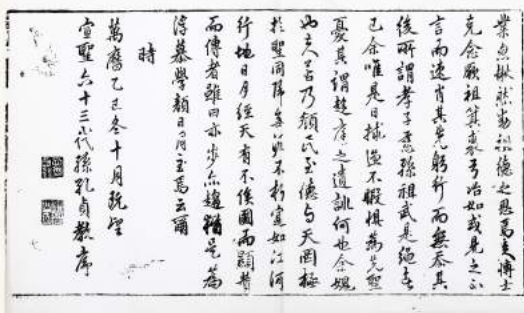 業急揪然兴追德之思焉夫博士
克念厥祖箕裘弓冶如或見之不
言而速肖其先躬行而無忝其
後所謂孝子慈孫祖武是繩者
已余唯是日捄過不暇惧為先聖
憂其謂趍庭之遺訓何也余媿
也夫若乃顏氏至德与天罔極
於聖同歸矣不朽寔如江河
行地日月經天有不俟圖而顯贊
而傳者雖曰亦步亦趨猶是為
淳慕學顏日月至焉云爾
時
萬曆乙巳冬十月既望
宣聖六十三代孫孔貞教序